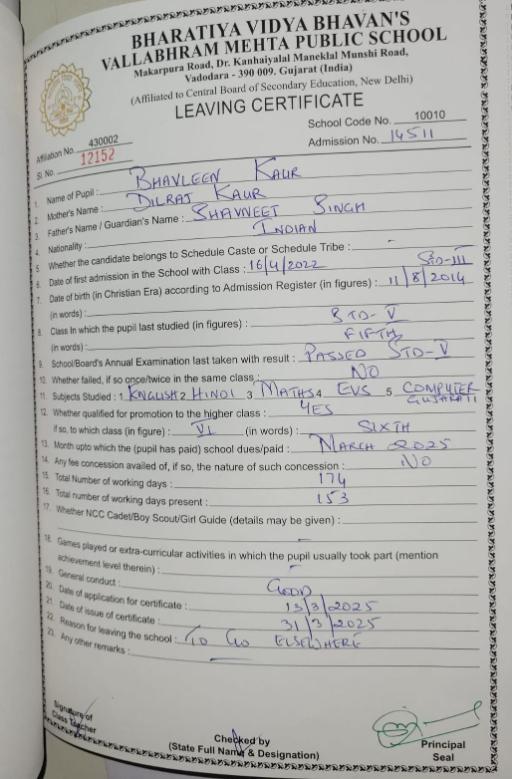 BHARATIYA VIDYA BHAVAN'S
VALLABHRAM MEHTA PUBLIC SCHOOL
Makarpura Road, Dr. Kanhaiyalal Maneklal Munshi Road,
Vadodara - 390 009. Gujarat (India)
(Affiliated to Central Board of Secondary Education, New Delhi)
LEAVING CERTIFICATE
School Code No. 10010
Affiliation No. 430002
Admission No. 14511
Sl. No. 12152
1. Name of Pupil : BHAVLEEN KAUR
2. Mother's Name : DILRAJ KAUR
3. Father's Name / Guardian's Name : BHAVNEET SINGH
4. Nationality : INDIAN
5. Whether the candidate belongs to Schedule Caste or Schedule Tribe : -
6. Date of first admission in the School with Class : 16/4/2022 STD-III
7. Date of birth (in Christian Era) according to Admission Register (in figures) : 11/8/2014
(in words) :
8. Class In which the pupil last studied (in figures) : STD-V
(in words) : FIFTH
9. School/Board's Annual Examination last taken with result : PASSED STD-V
10. Whether failed, if so once/twice in the same class : NO
11. Subjects Studied : 1 ENGLISH 2 HINDI 3 MATHS 4 EVS 5 COMPUTER
GUJARATI
12. Whether qualified for promotion to the higher class : YES
if so, to which class (in figure) : VI (in words) : SIXTH
13. Month upto which the (pupil has paid) school dues/paid : MARCH 2025
14. Any fee concession availed of, if so, the nature of such concession : NO
15. Total Number of working days : 174
16. Total number of working days present : 153
17. Whether NCC Cadet/Boy Scout/Girl Guide (details may be given) :
-
18. Games played or extra-curricular activities in which the pupil usually took part (mention
achievement level therein) : -
19. General conduct : GOOD
20. Date of application for certificate : 13/3/2025
21. Date of issue of certificate : 31/3/2025
22. Reason for leaving the school : TO GO ELSEWHERE
23. Any other remarks : -
Signature of
Class Teacher
Checked by
(State Full Name & Designation)
Principal
Seal